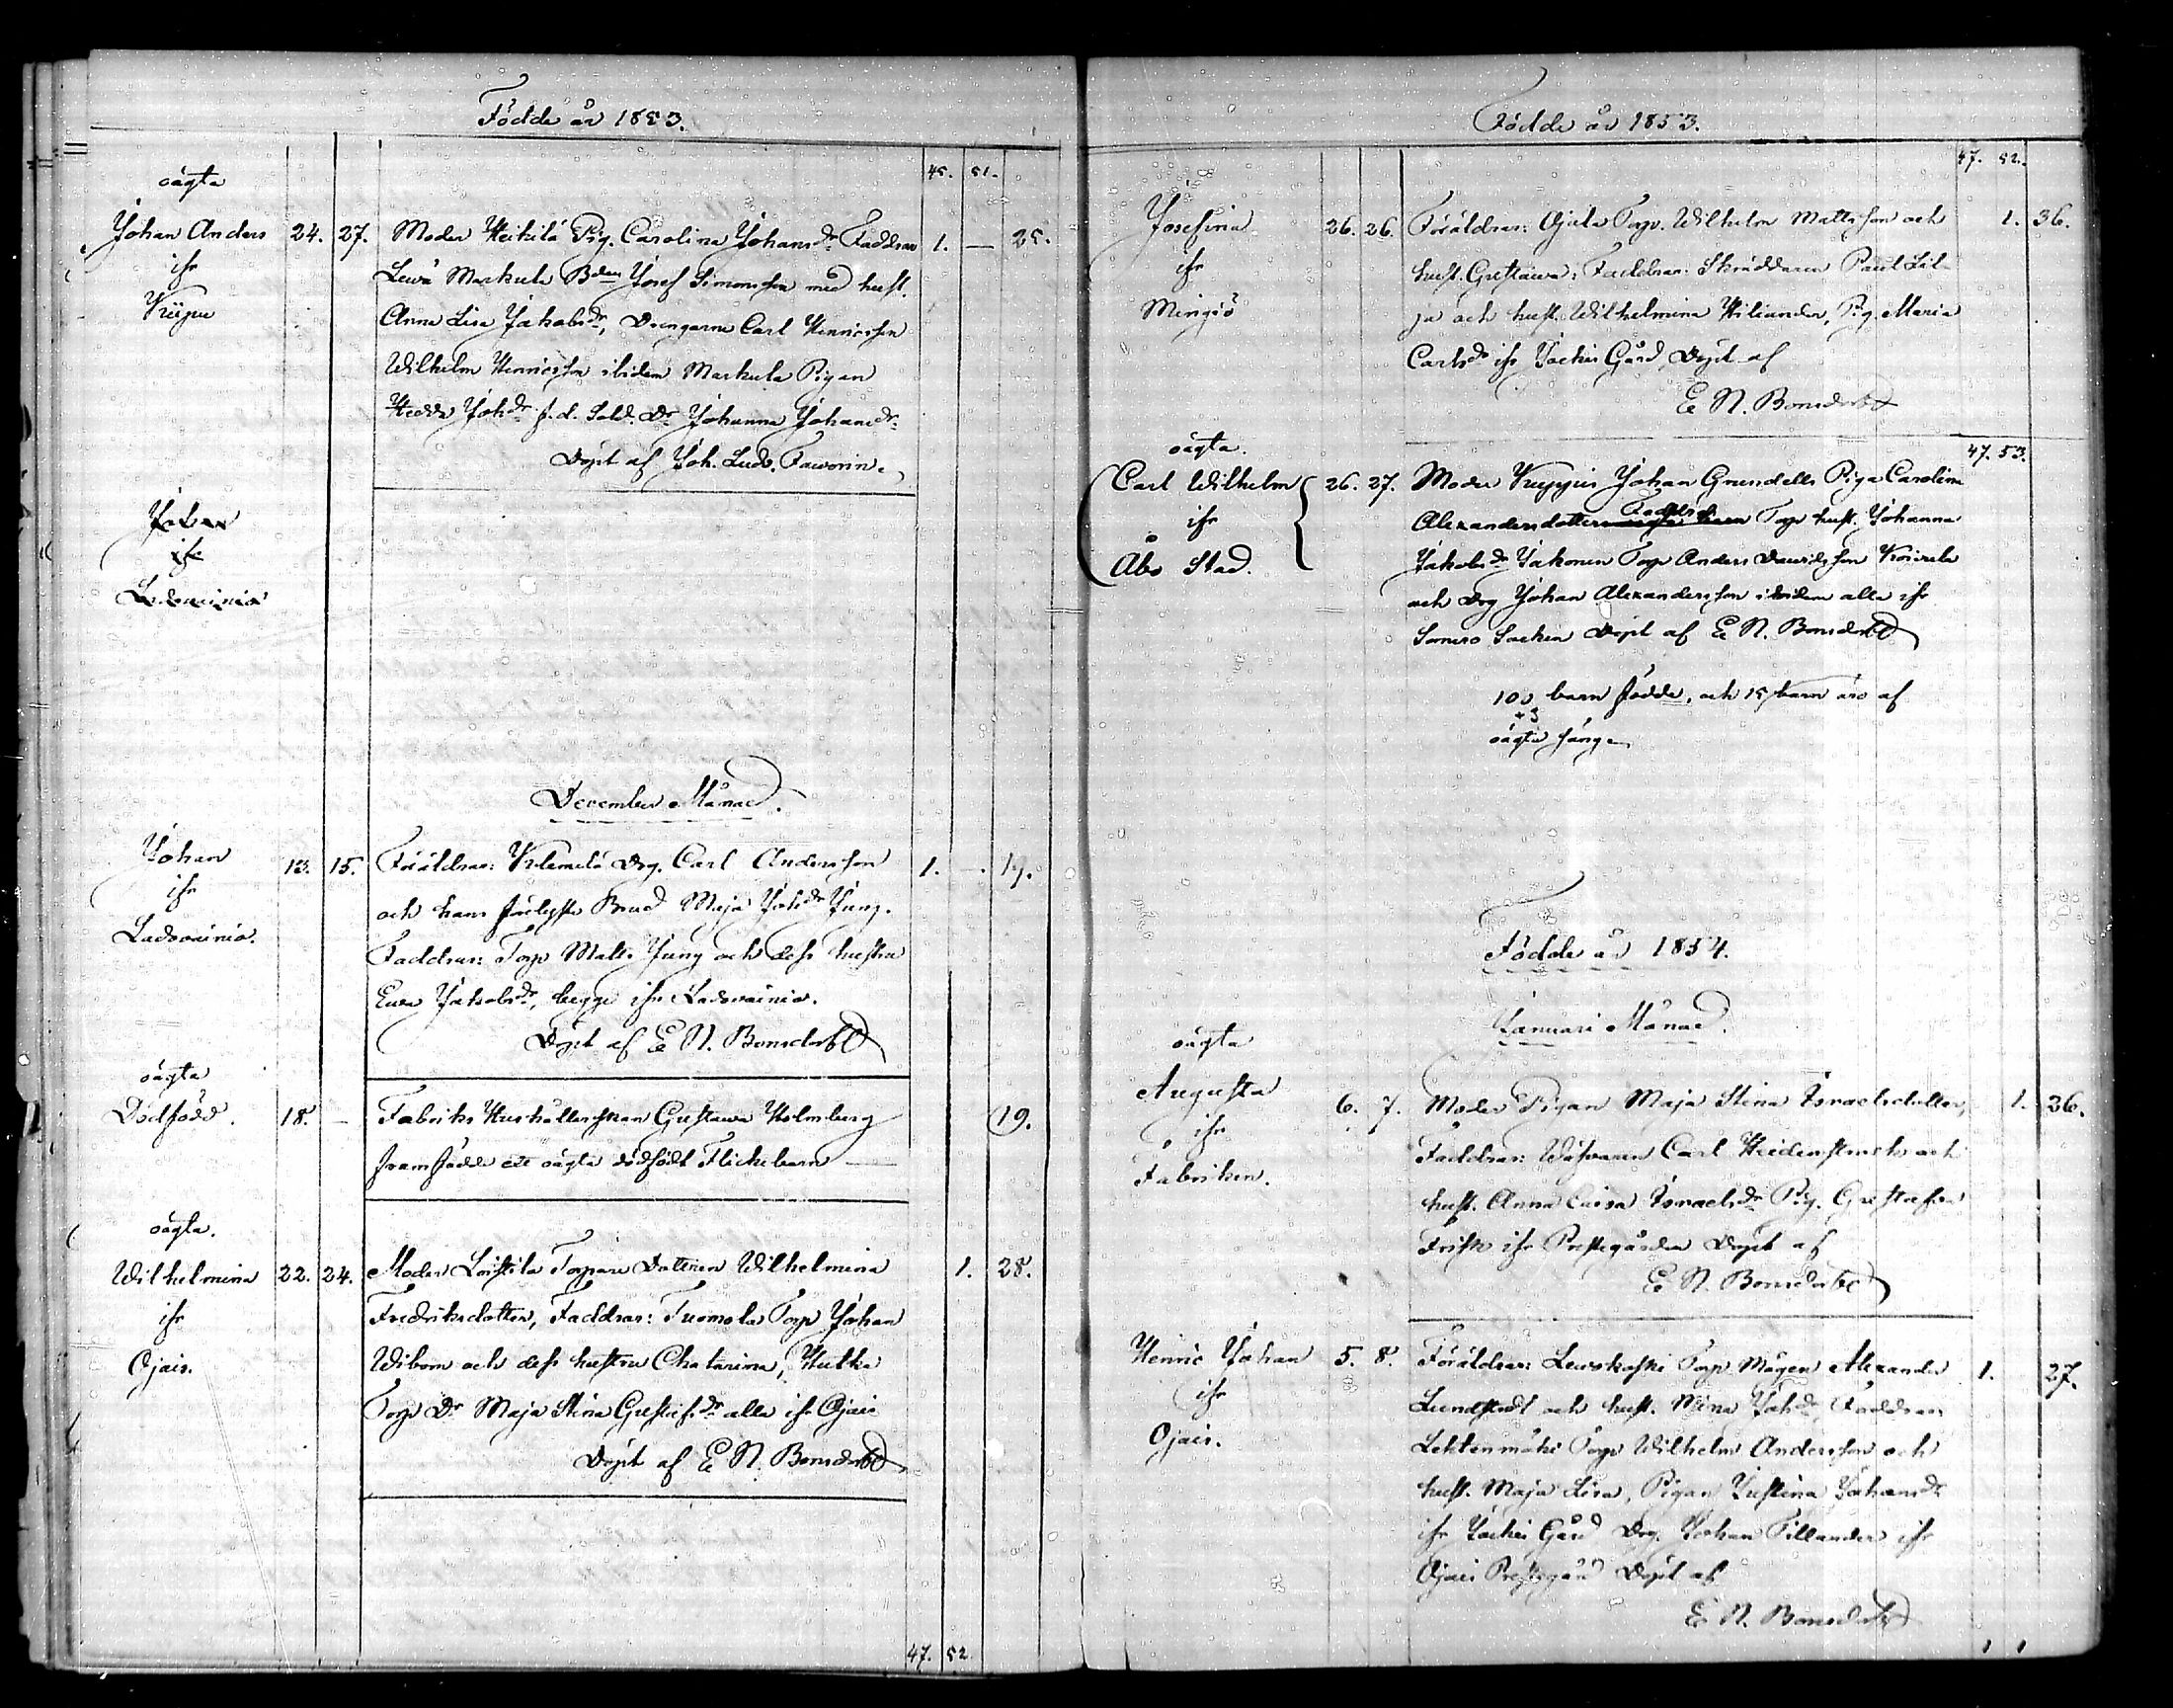 Födde år 1853.
45. 51.
oägta
Johan Anders 24. 27. Moder Heikilä Pig. Carolina Johansdr Faddrar 1. — 25.
ifr Lewä Markula Bden Josef Simonsson med hust.
Anna Lisa Jakobsdr, Drengarne Carl Henricsson
Wilhelm Henricsson ibidem Markula Pigan
Hedda Johdr f.d. Sold. Dr Johanna Johansdr
Döpt af Joh. Ludv. Faworin.
Johan
ifr
Ladvainio
December Månad.
Johan 13. 15. Föräldrar: Kylemilä Drg. Carl Andersson 1. — 19.
ifr och hans Brud Maja Johdr Jung.
Ladvainio. Faddrar: Torp Matts Jung och dess hustru
Eva Jakobsdr, begge ifr Ladvainio.
Döpt af E N. Bonsdorff
oägta
Dödfödd. 18. — Fabriks Hushållerskan Gustava Holmberg 19.
framfödde ett oägta dödfödt Flickebarn —
oägta.
Wilhelmina 22. 24. Moder Torpare Dotteren Wilhelmina 1. 28.
ifr Fredriksdotter, Faddrar: Tuomola Torp Johan
Ojais. Wibom och dess hustru Chatarina, Hutka
Torp Dr Maja Stina Gustafsdr alla ifr Ojais
Döpt af E N. Bonsdorff
47. 52
Födde år 1853.
47. 52.
Josefina 26. 26. Föräldrar: Ojala Torp. Wilhelm Mattsson och 1. 36.
ifr hust. Gustawa: Faddrar: Skräddaren Paul Lil-
Mingiö ja och hust. Wilhelmina Hiliander, Pig. Maria
Carlsdr ifr Jockis Gård Döpt af
E N. Bonsdorff
47. 53.
oägta.
Carl Wilhelm 26. 27. Moder Johan Grundells Piga Carolina
ifr Alexandersdotter Faddrar Torp hust. Johanna
Åbo Stad. Jakobsdr Jakonen Torp Anders Davidsson
och Drg Johan Alexandersson ibidem alla ifr
Somero Socken Döpt af E N. Bonsdorff
100 barn födde, och 15 barn äro af
+3
oägta säng.
Födde år 1854.
Januari Månad.
oägta
Augusta 6. 7. Moder Pigan Maja Stina Israelsdotter, 1. 36.
ifr Faddrar: Wäfvaren Carl Heidenstrauch och
Fabriken. hust. Anna Caisa Israelsdr Pig. Gustafva
Frisk ifr Prestegården Döpt af
E. N. Bonsdorff
Henric Johan 5. 8. Föräldrar: Torp Mågen Alexander 1. 27.
ifr Lundstedt och hust. Mina Johdr Faddrar
Ojais. Torp Wilhelm Andersson och
hust. Maja Lisa, Pigan Justina Johansdr
ifr Jockis Gård Drg. Johan Tillander ifr
Ojais Prestegård Döpt af
E N. Bonsdorff
1 1